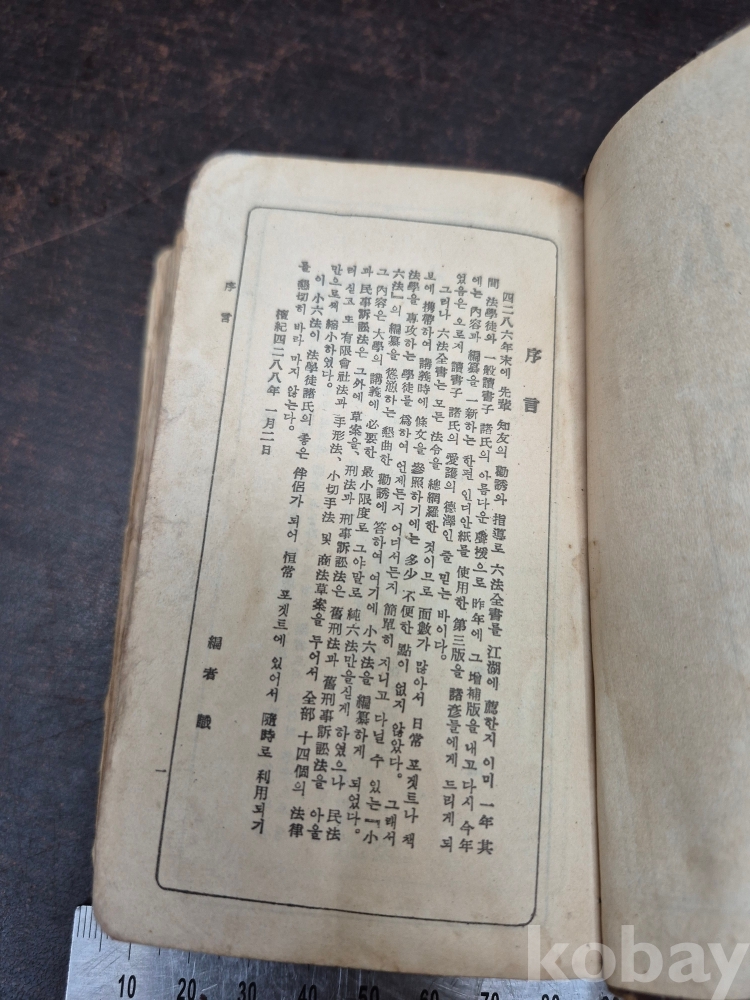 序言
四二八六年末에 先輩 知友의 勸誘와 指導로 六法全書를 江湖에 薦한지 이미 一年 其
間 法學徒와 一般讀書子 諸氏의 아름다운 聲援으로 昨年에 그 增補版을 내고 다시 今年
에는 內容과 編纂을 一新하는 한편 인디안紙를 使用한 第三版을 諸彦들에게 드리게 되
었음은 오로지 讀書子 諸氏의 愛護의 德澤인 줄 믿는 바이다。
그러나 六法全書는 모든 法令을 總網羅한 것이므로 面數가 많아서 日常 포켓트나 책
보에 携帶하여 講義時에 條文을 參照하기에는 多少 不便한 點이 없지 않았다。 그래서
法學을 專攻하는 學徒를 爲하여 언제든지 어디서든지 簡單히 지니고 다닐 수 있는 『小
六法』의 編纂을 慫慂하는 懇曲한 勸誘에 答하여 여기에 小六法을 編纂하게 되었다。
그 內容은 大學의 講義에 必要한 最小限度로 그야말로 純六法만을싣게 하였으나 民法
과 民事訴訟法은 그외에 草案을、刑法과 刑事訴訟法은 舊刑法과 舊刑事訴訟法을 아울
러 싣고 또 有限會社法과 手形法、小切手法 및 商法草案을 두어서 全部 十四個의 法律
만으로써 縮小하였다。
이 小六法이 法學徒諸氏의 좋은 伴侶가 되어 恒常 포켓트에 있어서 隨時로 利用되기
를 懇切히 바라 마지 않는다。
檀紀四二八八年 一月二日
編者 識
序言
一
10 20 30 40 50 60 70 80
kobay